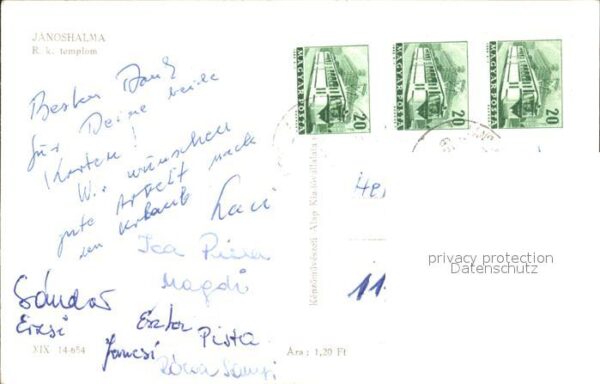 JANOSHALMA
R. k. templom
Besten Dank
für Deine beide
Karten!
Wir wünschen
gute Arbeit nach
den Urlaub Laci
Ica Piri
Magdi
Sándor
Erzsi
Eszter Pista
Jancsi
XIX 14-654
Ára: 1,20 Ft
Képzőművészeti Alap Kiadóvállalata
MAGYAR POSTA 20
MAGYAR POSTA 20
MAGYAR POSTA 20
11
privacy protection
Datenschutz